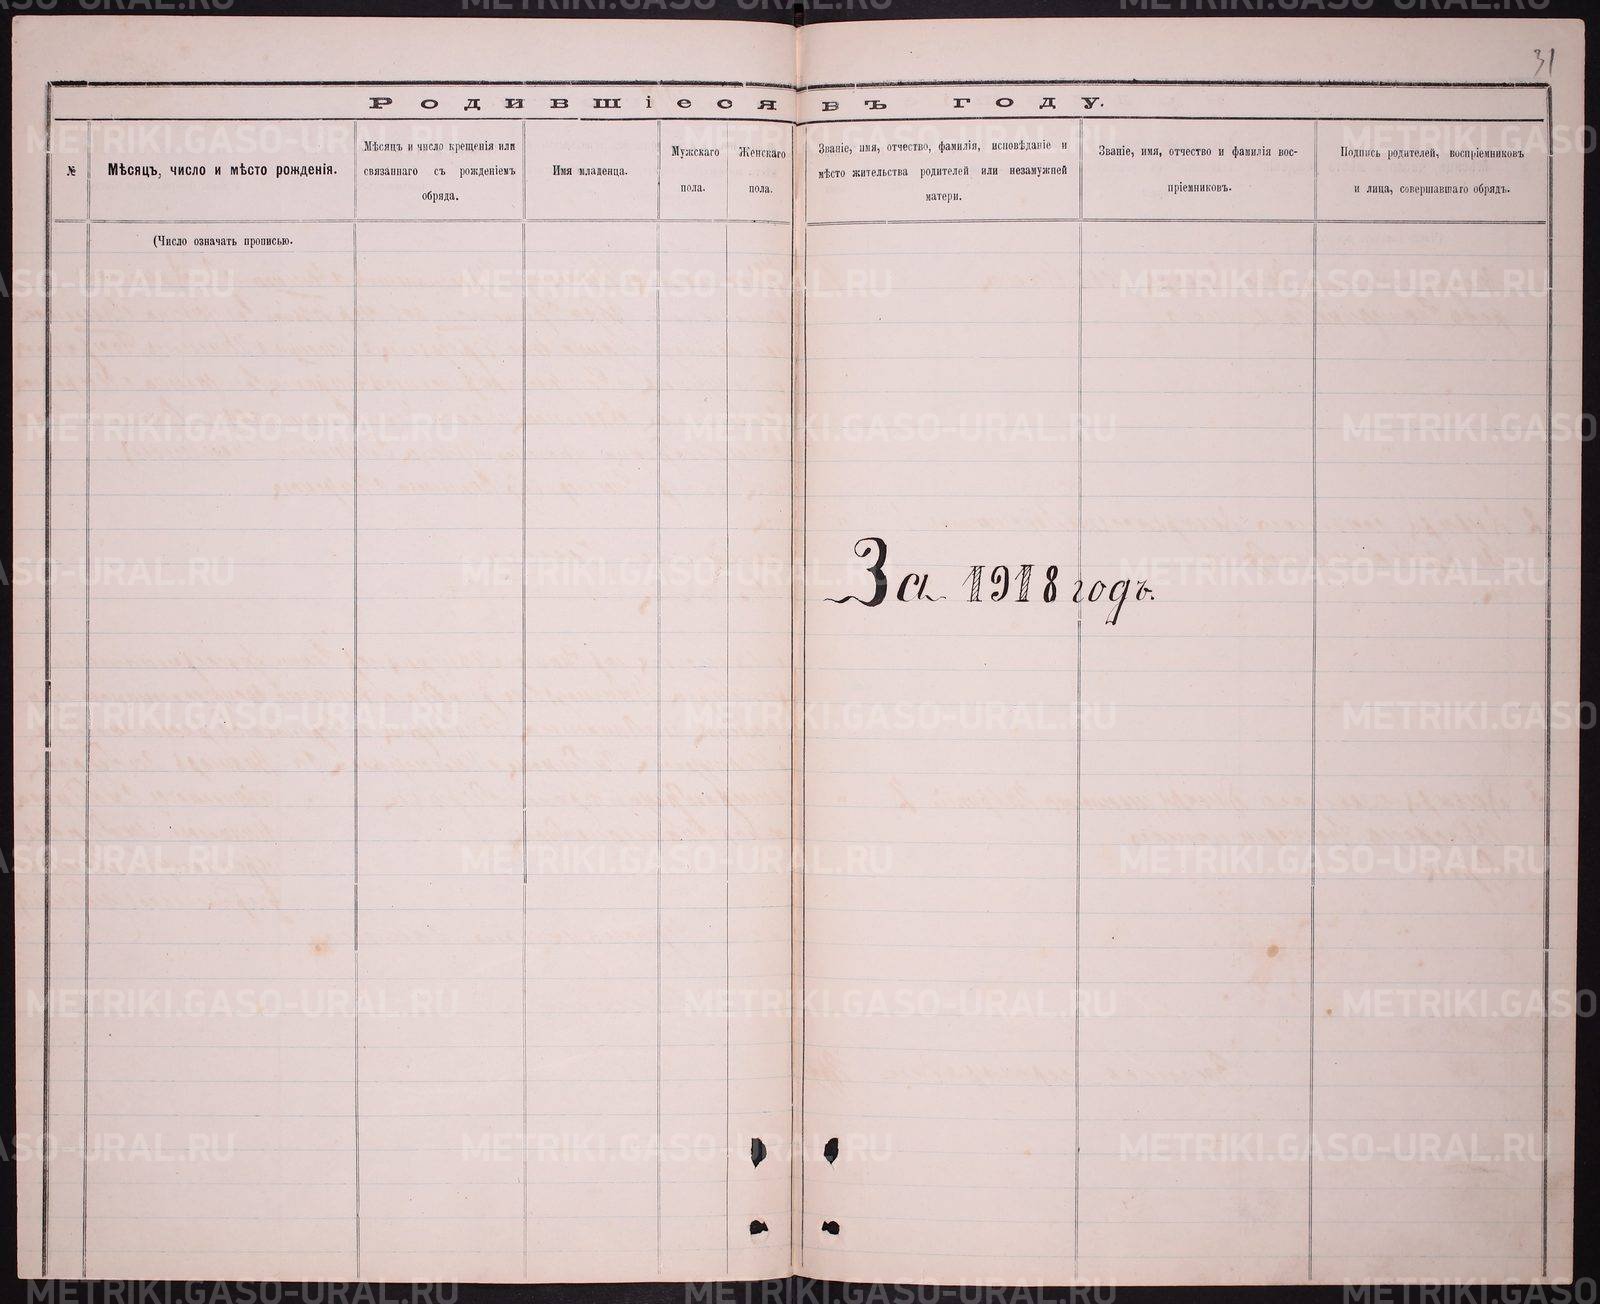 31
Родившіеся въ году.
№
Мѣсяцъ, число и мѣсто рожденія.
Мѣсяцъ и число крещенія или
связаннаго съ рожденіемъ
обряда.
Имя младенца.
Мужскаго
пола.
Женскаго
пола.
Званіе, имя, отчество, фамилія, исповѣданіе и
мѣсто жительства родителей или незамужней
матери.
Званіе, имя, отчество и фамилія вос-
пріемниковъ.
Подпись родителей, воспріемниковъ
и лица, совершавшаго обрядъ.
(Число означать прописью.
За 1918 годъ.
METRIKI.GASO-URAL.RU